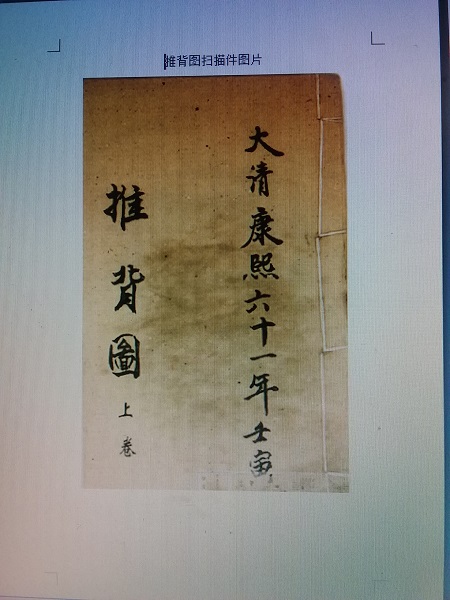 推背图扫描件图片
大清康熙六十一年壬寅
推背圖上卷